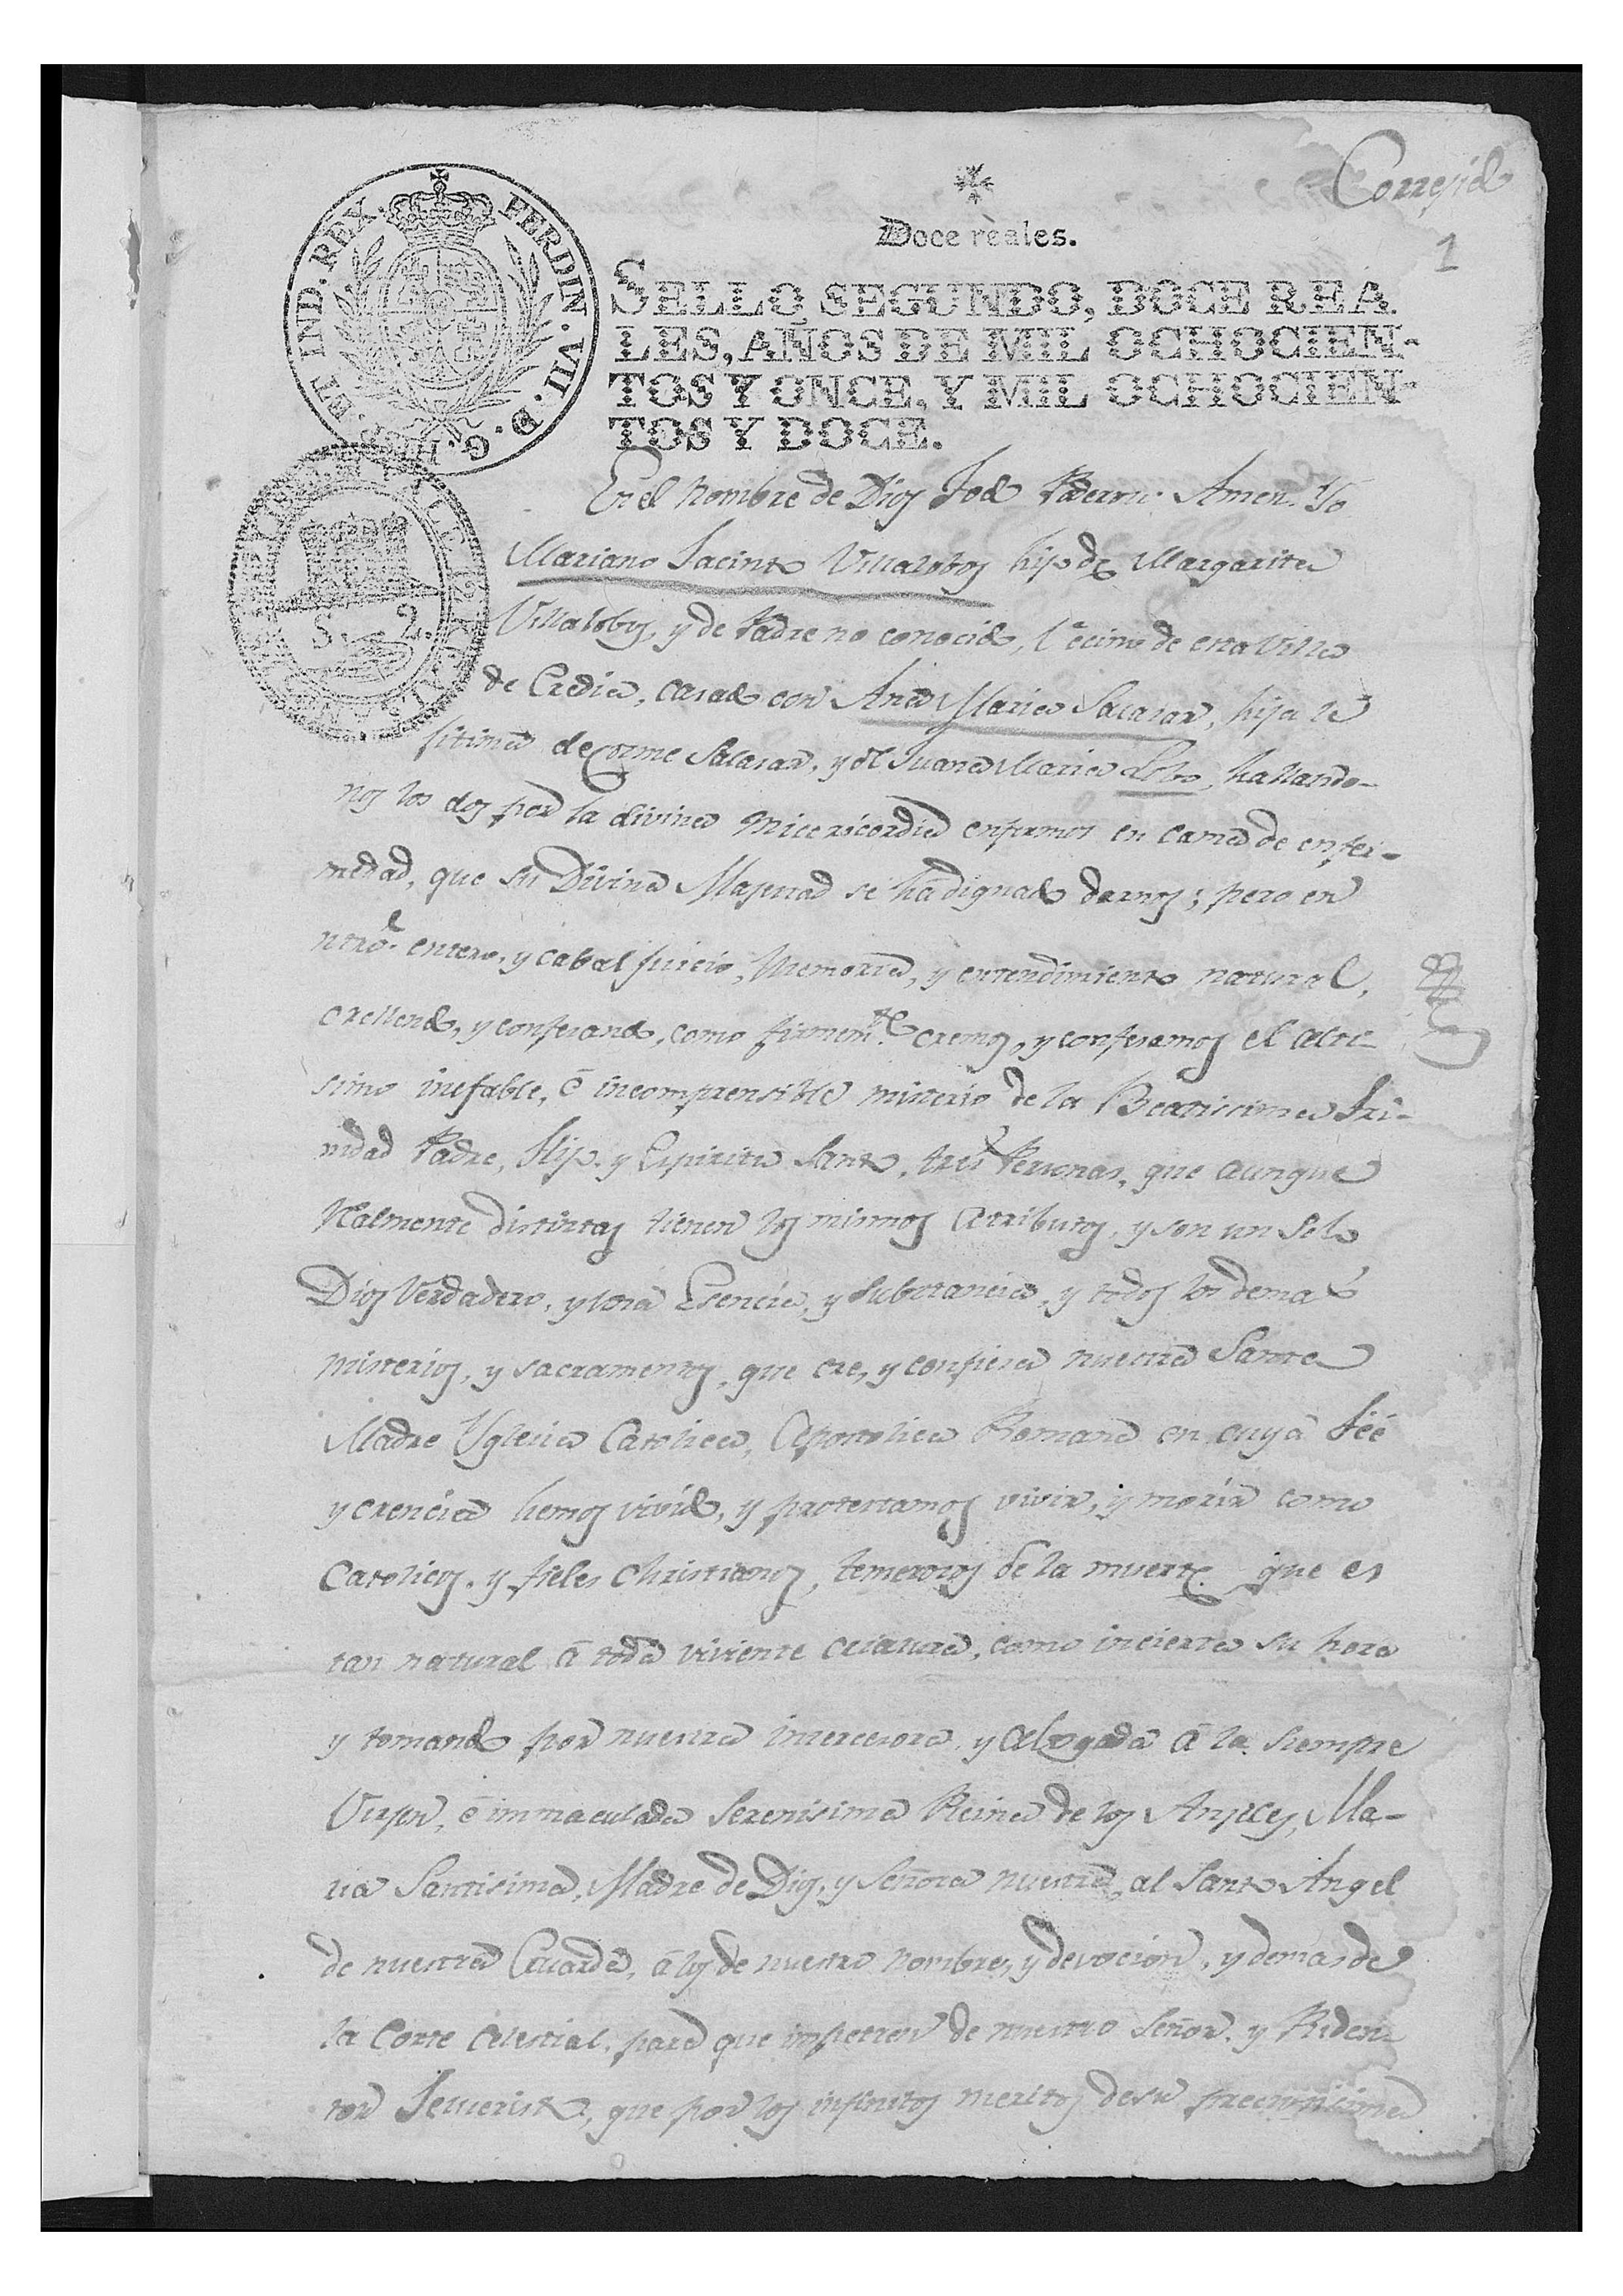 Corregido
1
Doce reales.
SELLO SEGUNDO, DOCE REA
LES, AÑOS DE MIL OCHOCIEN-
TOS Y ONCE, Y MIL OCHOCIEN-
TOS Y DOCE.
FERDIN. VII. D. G. HISP. ET IND. REX.
S. 2.
En el Nombre de Dios Todo Poderoso Amen. Yo
Mariano Jacinto Villalobos hijo de Margarita
Villalobos, y de Padre no conocido, Vecino de esta Villa
de Eredia, casado con Ana Maria Salasar, hija le
jitima de Cosme Salasar, y de Juana Maria Lobo, hallando-
nos los dos por la divina Micericordia enfermos en cama de enfer-
medad, que su Divina Magestad se hà dignado darnos; pero en
ntrô. entero, y cabal juicio, Memoria, y entendimiento natural,
crellendo, y confesando, como firmem.te cremos, y confesamos el alti-
simo inefable, é incomprensible misterio de la Beatissima Tri-
nidad Padre, Hijo, y Espiritu Santo, tres Personas, que aunque
Realmente distintas tienen los mismos atributos, y son un solo
Dios Verdadero, y una Esencia, y Substancia, y todos los demas
Misterios, y sacramentos, que cre, y confiesa nuestra Santa
Madre Yglesia Catolica, Apostolica Romana en cuya Féé
y crencia hemos vivido, y protestamos vivir, y morir como
Catolicos, y fieles Christianos, temerosos de la muerte que es
tan natural á toda viviente criatura, como incierta su hora
y tomando por nuestra intercesora, y abogada á la siempre
Virjen, é immaculada Serenisima Reina de los Anjeles, Ma-
ria Santisima, Madre de Dios, y Señora nuestra, al Santo Angel
de nuestra Guarda, á los de nuestro nombre, y devocion, y demas de
la Corte Celestial, para que impetren de nuestro Señor, y Reden-
tor Jesucristo, que por los infinitos meritos de su preciosisima